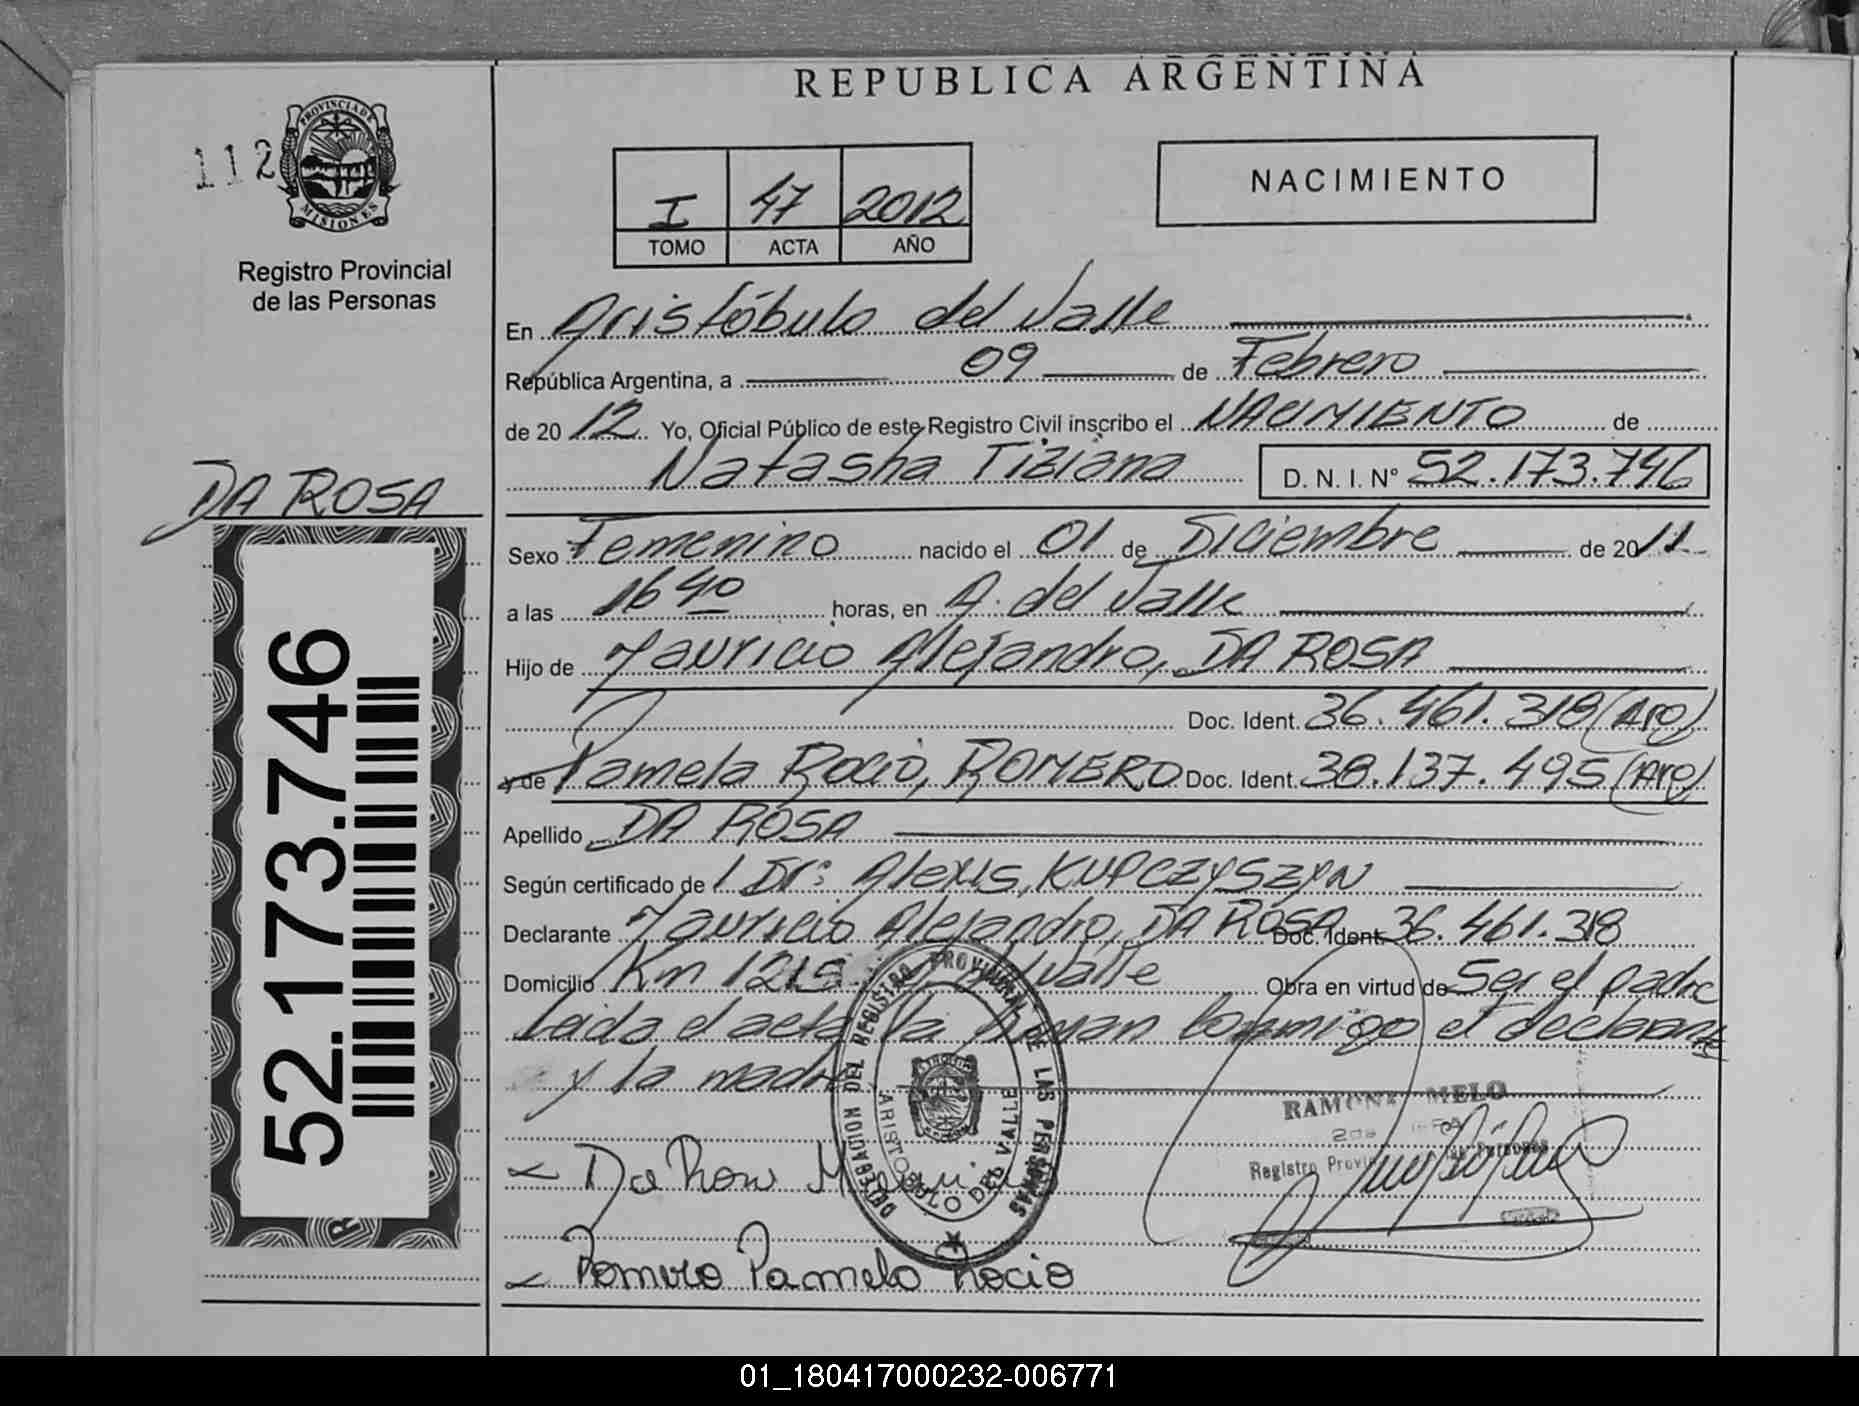 REPUBLICA ARGENTINA
112
PROVINCIA DE MISIONES
Registro Provincial
de las Personas
I 47 2012
TOMO ACTA AÑO
NACIMIENTO
En Aristóbulo del Valle
República Argentina, a 09 de Febrero
de 2012 Yo, Oficial Público de este Registro Civil inscribo el NACIMIENTO de
Natasha Tiziana D. N. I. Nº 52.173.746
DA ROSA
Sexo Femenino nacido el 01 de Diciembre de 2011
a las 16 40 horas, en A. del Valle
Hijo de Mauricio Alejandro, DA ROSA
Doc. Ident. 36.461.318 (Arg)
y de Pamela Rocio, ROMERO Doc. Ident. 38.137.495 (Arg)
Apellido DA ROSA
Según certificado de Dr: Alexis, KUPCZYSZYN
Declarante Mauricio Alejandro, DA ROSA Doc. Ident. 36.461.318
Domicilio Km 1215 Valle Obra en virtud de Ser el padre
Leida el acta la firman conmigo el declarante
y la madre
52.173.746
DELEGACION DEL REGISTRO PROVINCIAL DE LAS PERSONAS
ARISTOBULO DEL VALLE
RAMONA MELO
Registro Provincial Personas
Da Rosa Mauricio
Romero Pamela Rocio
01_180417000232-006771